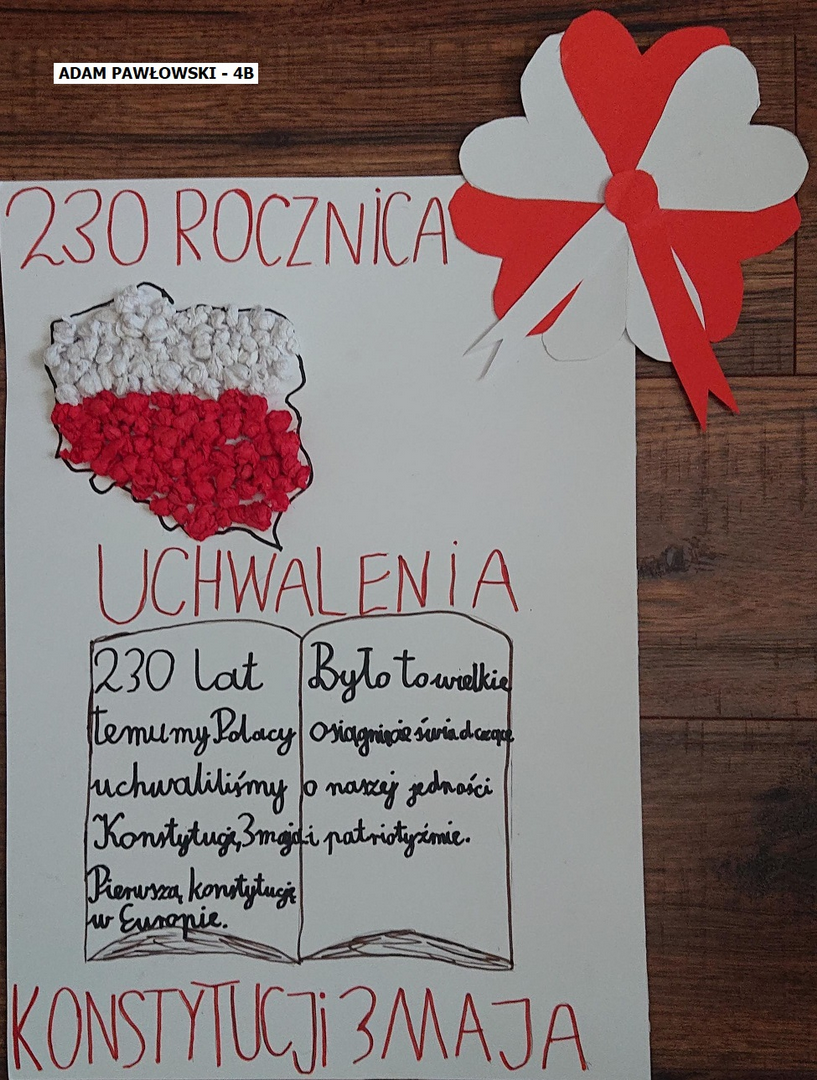 ADAM PAWŁOWSKI - 4B
230 ROCZNiCA
UCHWALENiA
230 lat
temu my Polacy
uchwaliliśmy
Konstytucję 3 maja
Pierwszą konstytucję
w Europie.
Było to wielkie
osiągnięcie świadczące
o naszej jedności
i patriotyźmie.
KONSTYTUCJi 3 MAJA